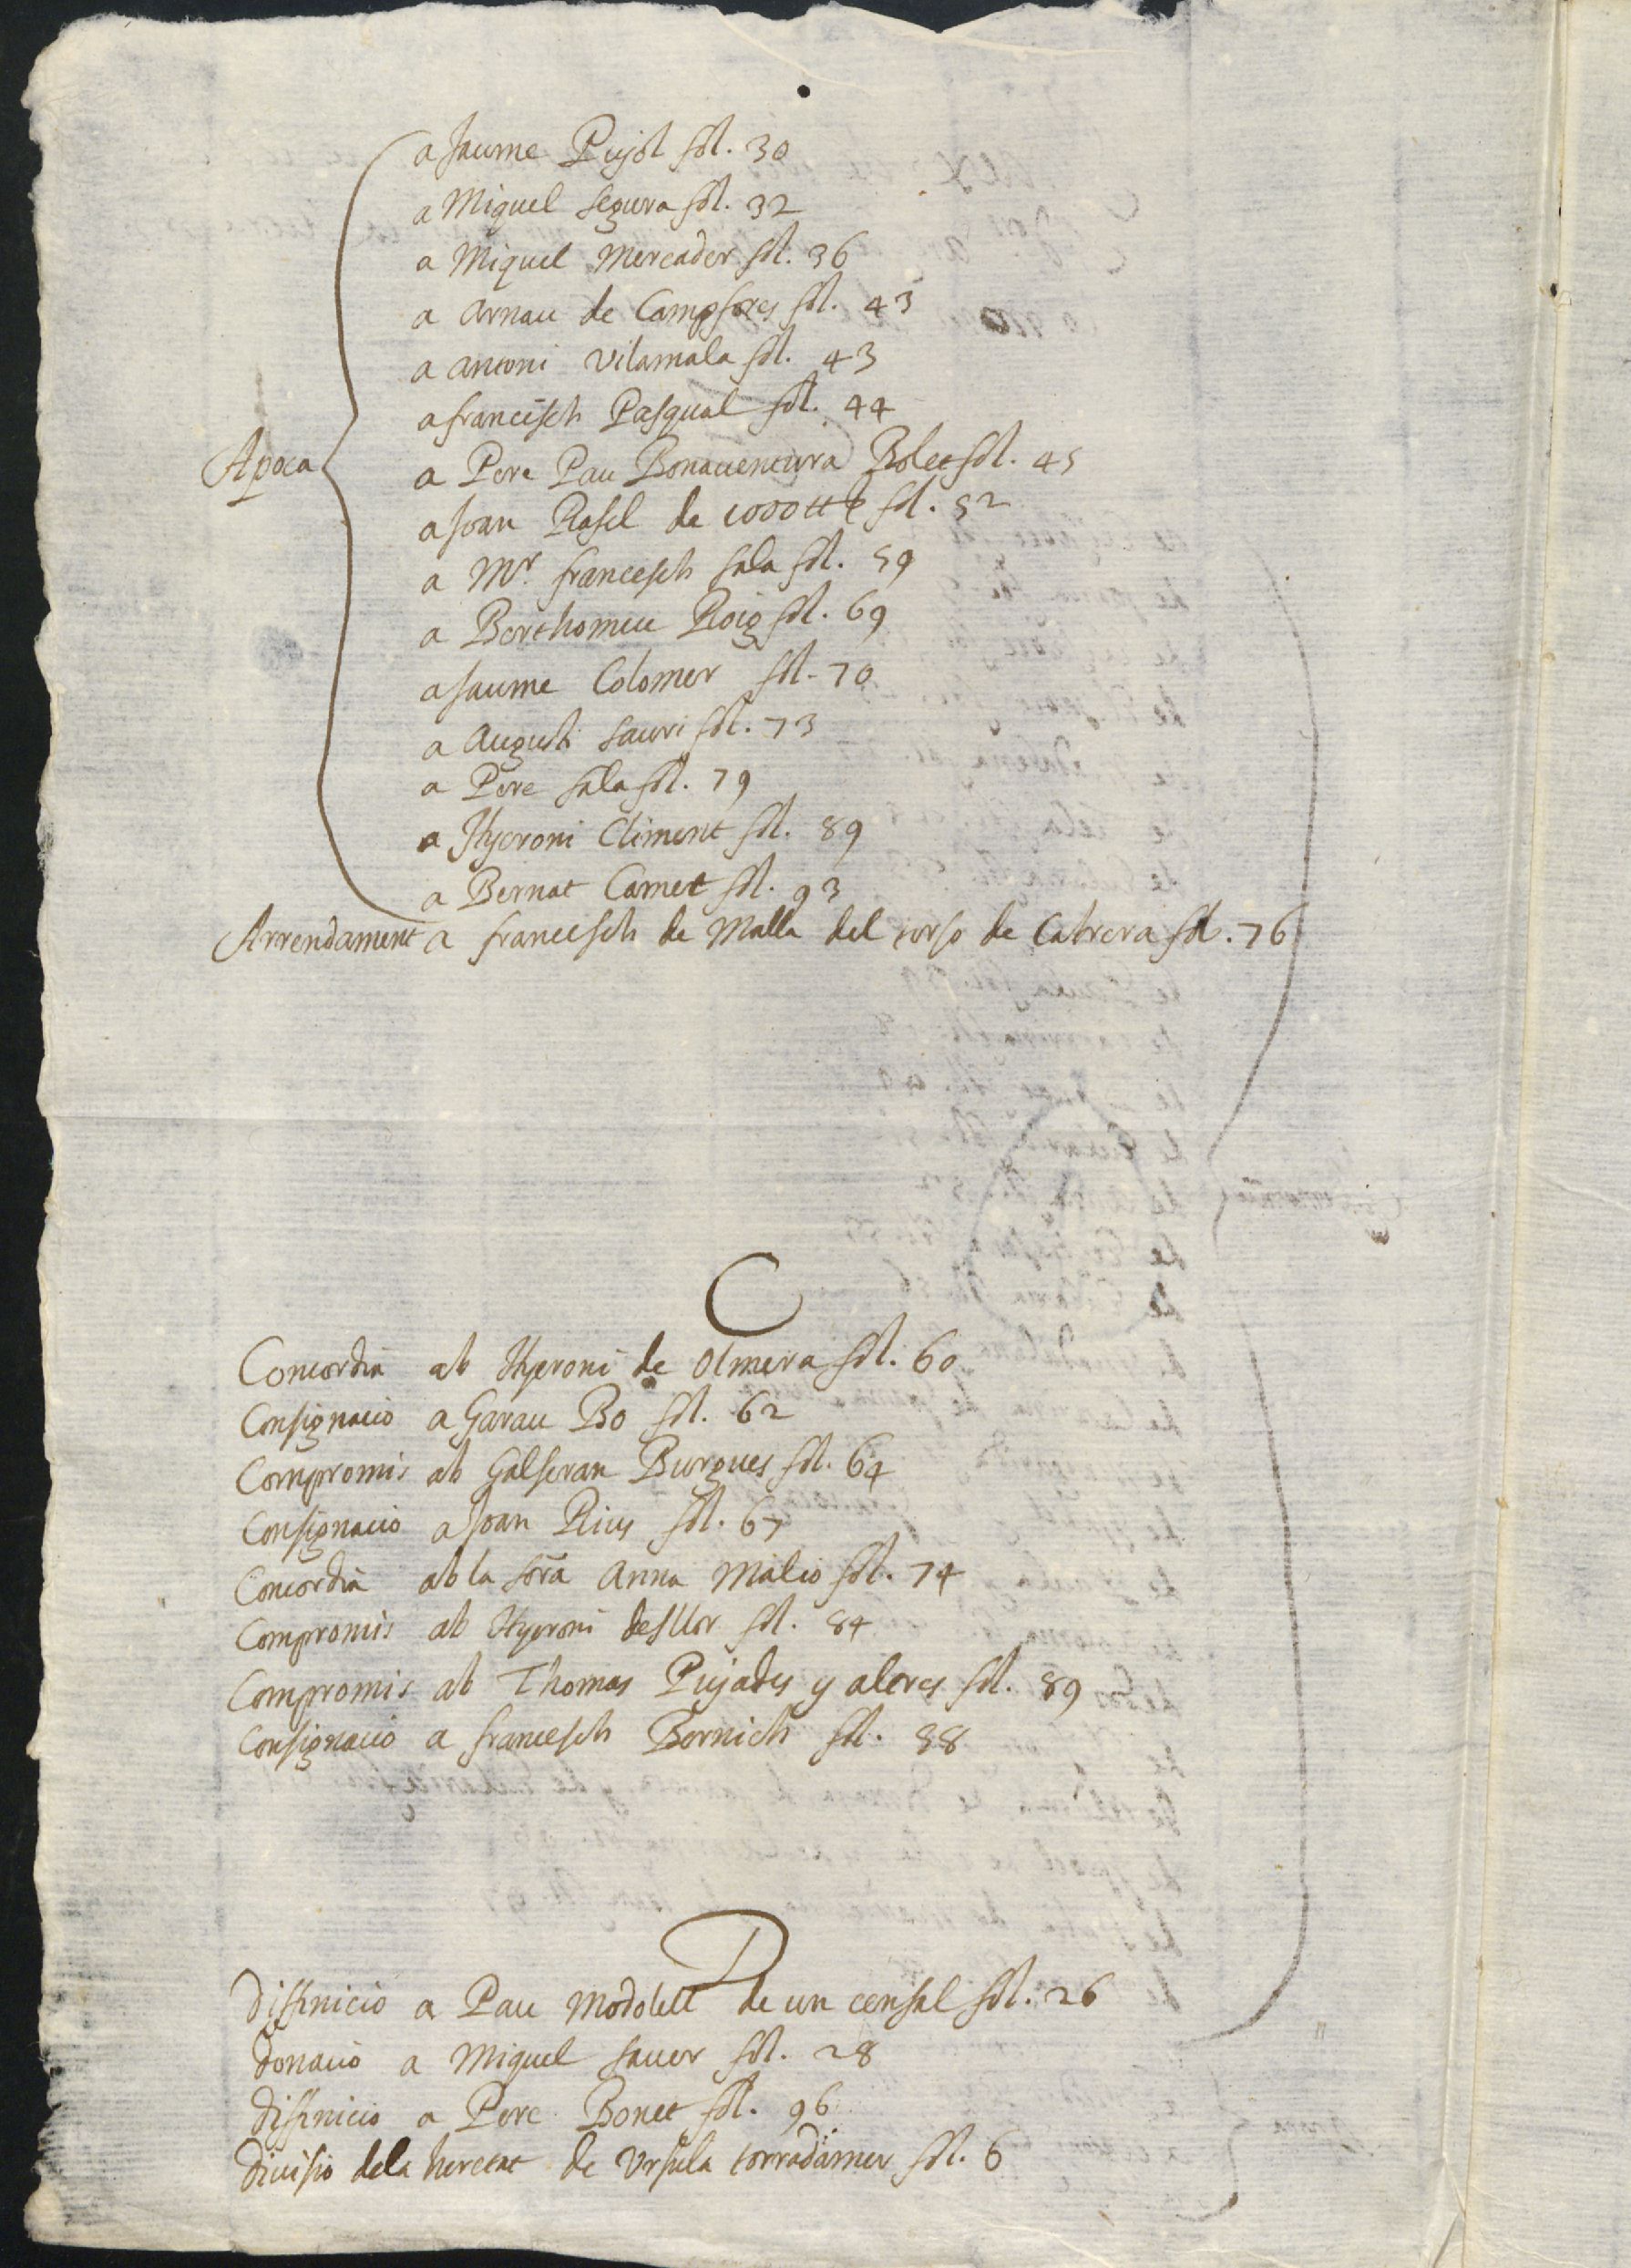 a Jaume Pujol fol. 30
a Miquel Segura fol. 32
a Miquel Mercader fol. 36
a Arnau de Campsores fol. 43
a Antoni Vilamala fol. 43
a francesch Pasqual fol. 44
Apoca a Pere Pau Bonaventura Bolet fol. 45
a Joan Rosel de 1000 fol. 52
a Mr. francesch Sala fol. 59
a Berthomeu Roig fol. 69
a Jaume Colomer fol. 70
a Augusti Sauri fol. 73
a Pere Sala fol. 79
a Hyeroni Climent fol. 89
a Bernat Comet fol. 93
Arrendament a francesch de Malla del corso de Cabrera fol. 76
C
Concordia ab Hyeroni de Olmera fol. 60
Consignacio a Garau Bo fol. 62
Compromis ab Galseran Burgues fol. 64
Consignacio a Joan Rius fol. 67
Concordia ab la Sora Anna Malio fol. 74
Compromis ab Hyeroni desllor fol. 84
Compromis ab Thomas Pujades y altres fol. 89
Consignacio a francesch Bornich fol. 88
D
Diffinicio a Pau Modolell de un censal fol. 26
Donacio a Miquel Saver fol. 28
Diffinicio a Pere Bonet fol. 96
Divisio dela heretat de Ursula torradamer fol. 6